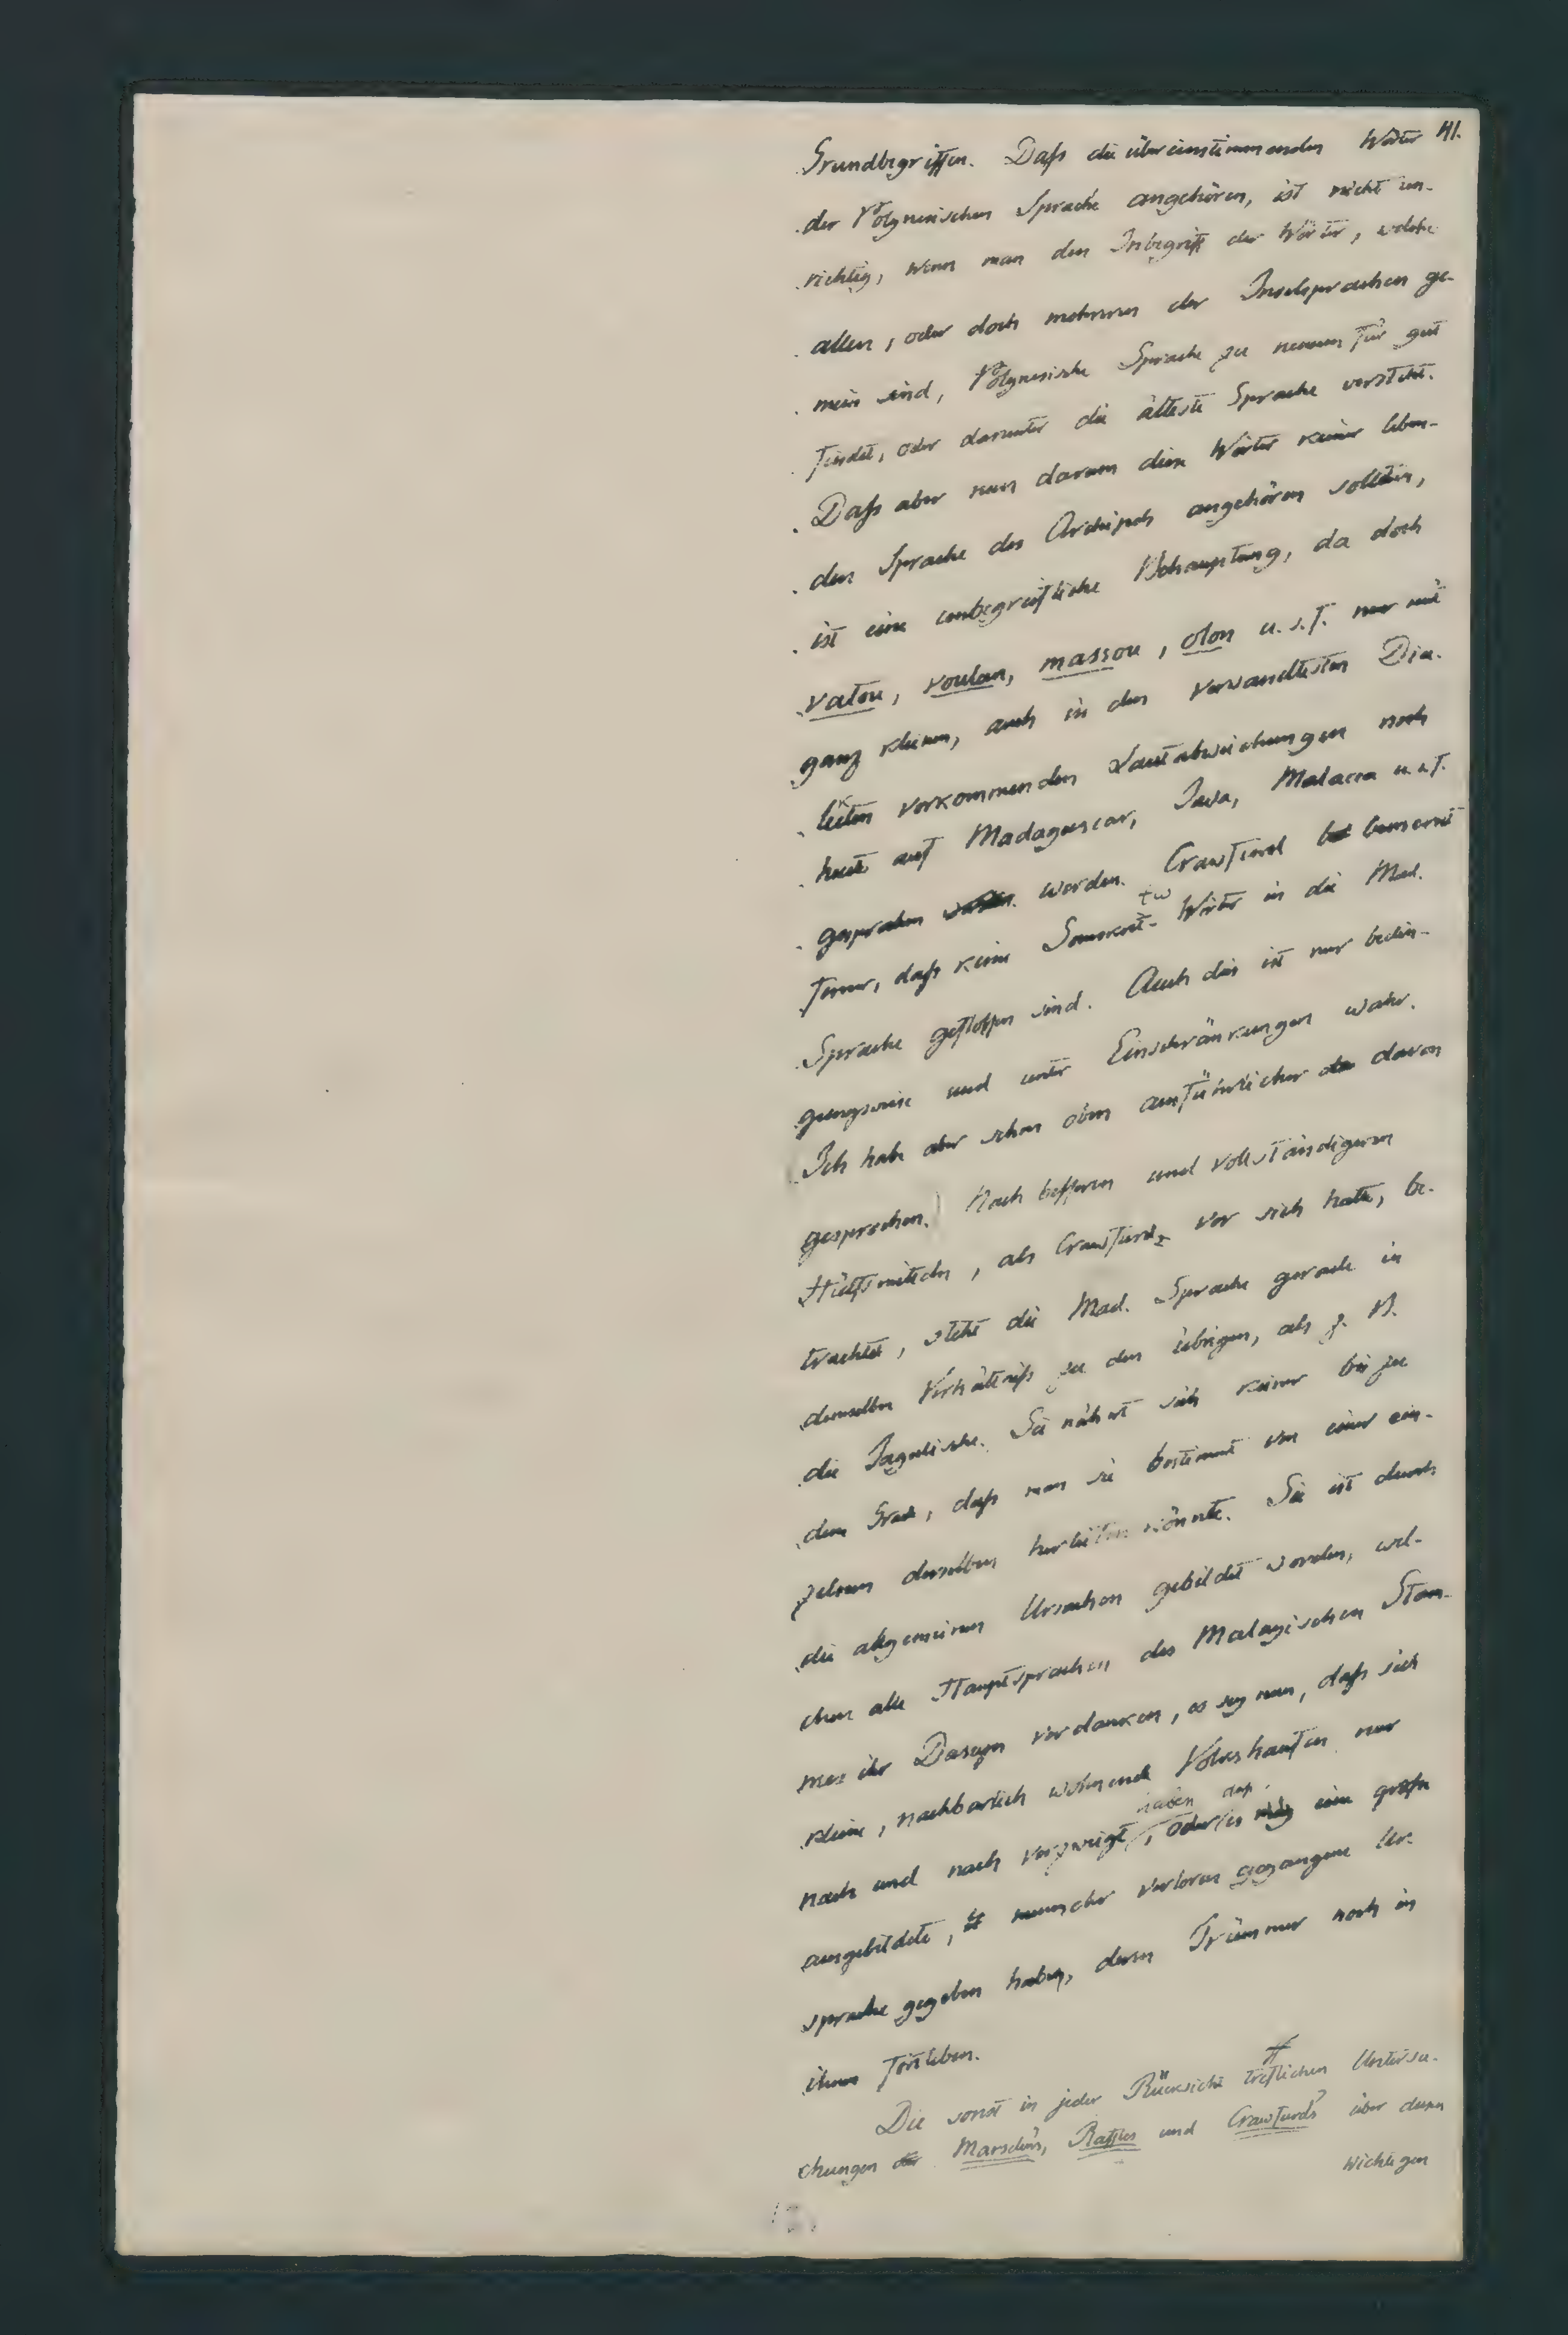 41.
Grundbegriffen. Daß die übereinstimmenden Wörter
der Polynesischen Sprache angehören, ist nicht un-
richtig, wenn man den Inbegriff der Wörter, welche
allen, oder doch mehreren der Inselsprachen ge-
mein sind, Polynesische Sprache zu nennen für gut
findet, oder darunter die älteste Sprache versteht.
Daß aber nun darum diese Wörter keiner leben-
den Sprache des Archipels angehören sollten,
ist eine unbegreifliche Behauptung, da doch
vatou, voulan, massou, olon u.s.f. nur mit
ganz kleinen, auch in den verwandtesten Dia-
lekten vorkommenden Lautabweichungen noch
heute auf Madagascar, Java, Malacca u.s.f.
gesprochen werden. Crawfurd bemerkt
ferner, daß keine Sanskrit-Wörter in die Mad.
Sprache geflossen sind. Auch dies ist nur bedin-
gungsweise und unter Einschränkungen wahr.
Ich habe aber schon oben ausführlicher davon
gesprochen. Nach besseren und vollständigeren
Hülfsmitteln, als Crawfurd vor sich hatte, be-
trachtet, steht die Mad. Sprache gerade in
demselben Verhältniß zu den übrigen, als z. B.
die Tagalische. Sie nähert sich keiner bis zu
dem Grade, daß man sie bestimmt von einer ein-
zelnen derselben herleiten könnte. Sie ist durch
die allgemeinen Ursachen gebildet worden, wel-
chen alle Hauptsprachen des Malayischen Stam-
mes ihr Daseyn verdanken, es sey nun, daß sich
kleine, nachbarlich wohnende Volkshaufen nur
haben daß
nach und nach verzweigt, oder es eine große
ausgebildete, verloren gegangene Ur-
sprache gegeben habe, deren Trümmer noch in
ihnen fortleben.
Die sonst in jeder Rücksicht treflichen Untersu-
chungen Marsden's, Raffles und Crawfurd's über diesen
wichtigen